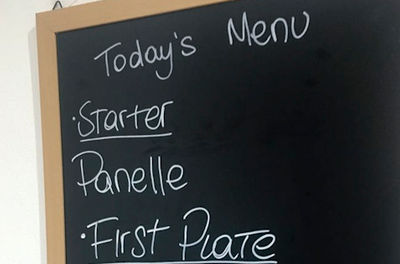 Today's Menu
·Starter
Panelle
·First Plate